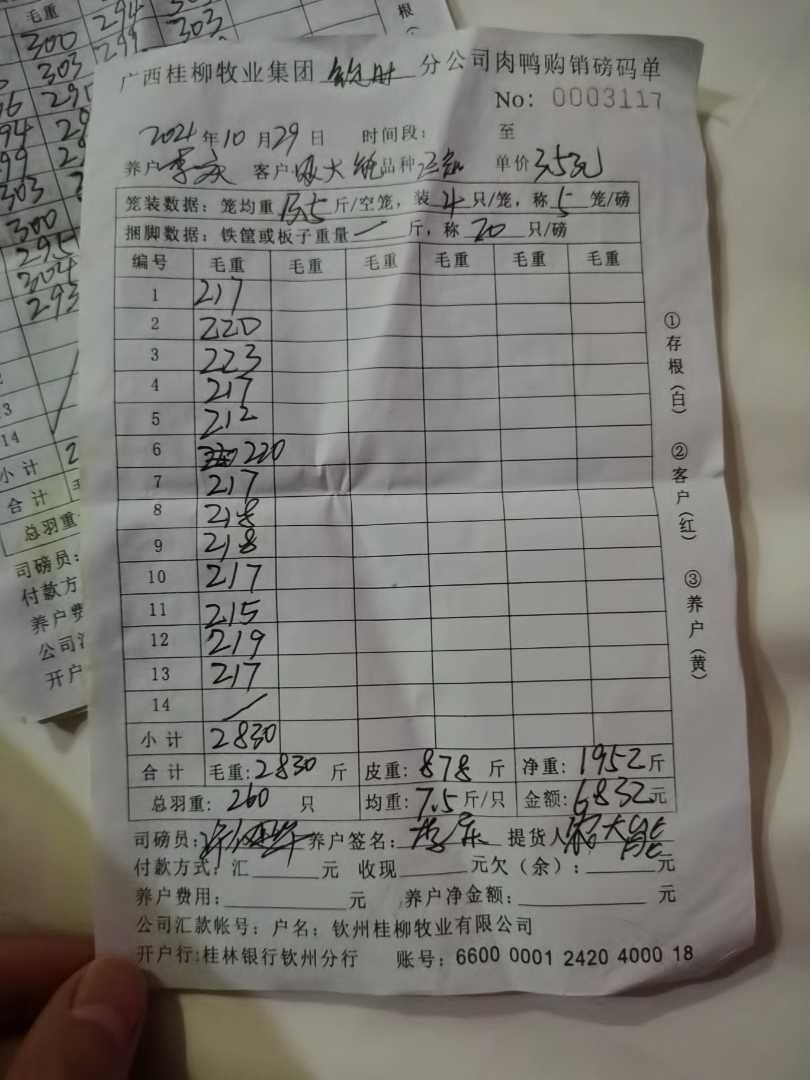 广西桂柳牧业集团 钦州 分公司肉鸭购销磅码单
No: 0003117
2021年10月29日 时间段: 至
养户 客户 品种 单价3.5元
笼装数据: 笼均重13.5斤/空笼, 装4只/笼, 称5笼/磅
捆脚数据: 铁筐或板子重量 一 斤, 称20只/磅
编号 毛重 毛重 毛重 毛重 毛重 毛重
1 217
2 220
3 223
4 217
5 212
6 220
7 217
8 218
9 218
10 217
11 215
12 219
13 217
14 /
小计 2830
合计 毛重: 2830斤 皮重: 878斤 净重: 1952斤
总羽重: 260只 均重: 7.5斤/只 金额: 6832元
司磅员: 养户签名: 提货人
付款方式: 汇 元 收现 元欠(余): 元
养户费用: 元 养户净金额: 元
公司汇款帐号: 户名: 钦州桂柳牧业有限公司
开户行:桂林银行钦州分行 账号: 6600 0001 2420 4000 18
①存根(白) ②客户(红) ③养户(黄)
毛重
300 294 303
303 299
295
294
299
303
300
295
304
293
14
小计
合计
总羽重
司磅员:
付款方
养户费
公司汇
开户
根